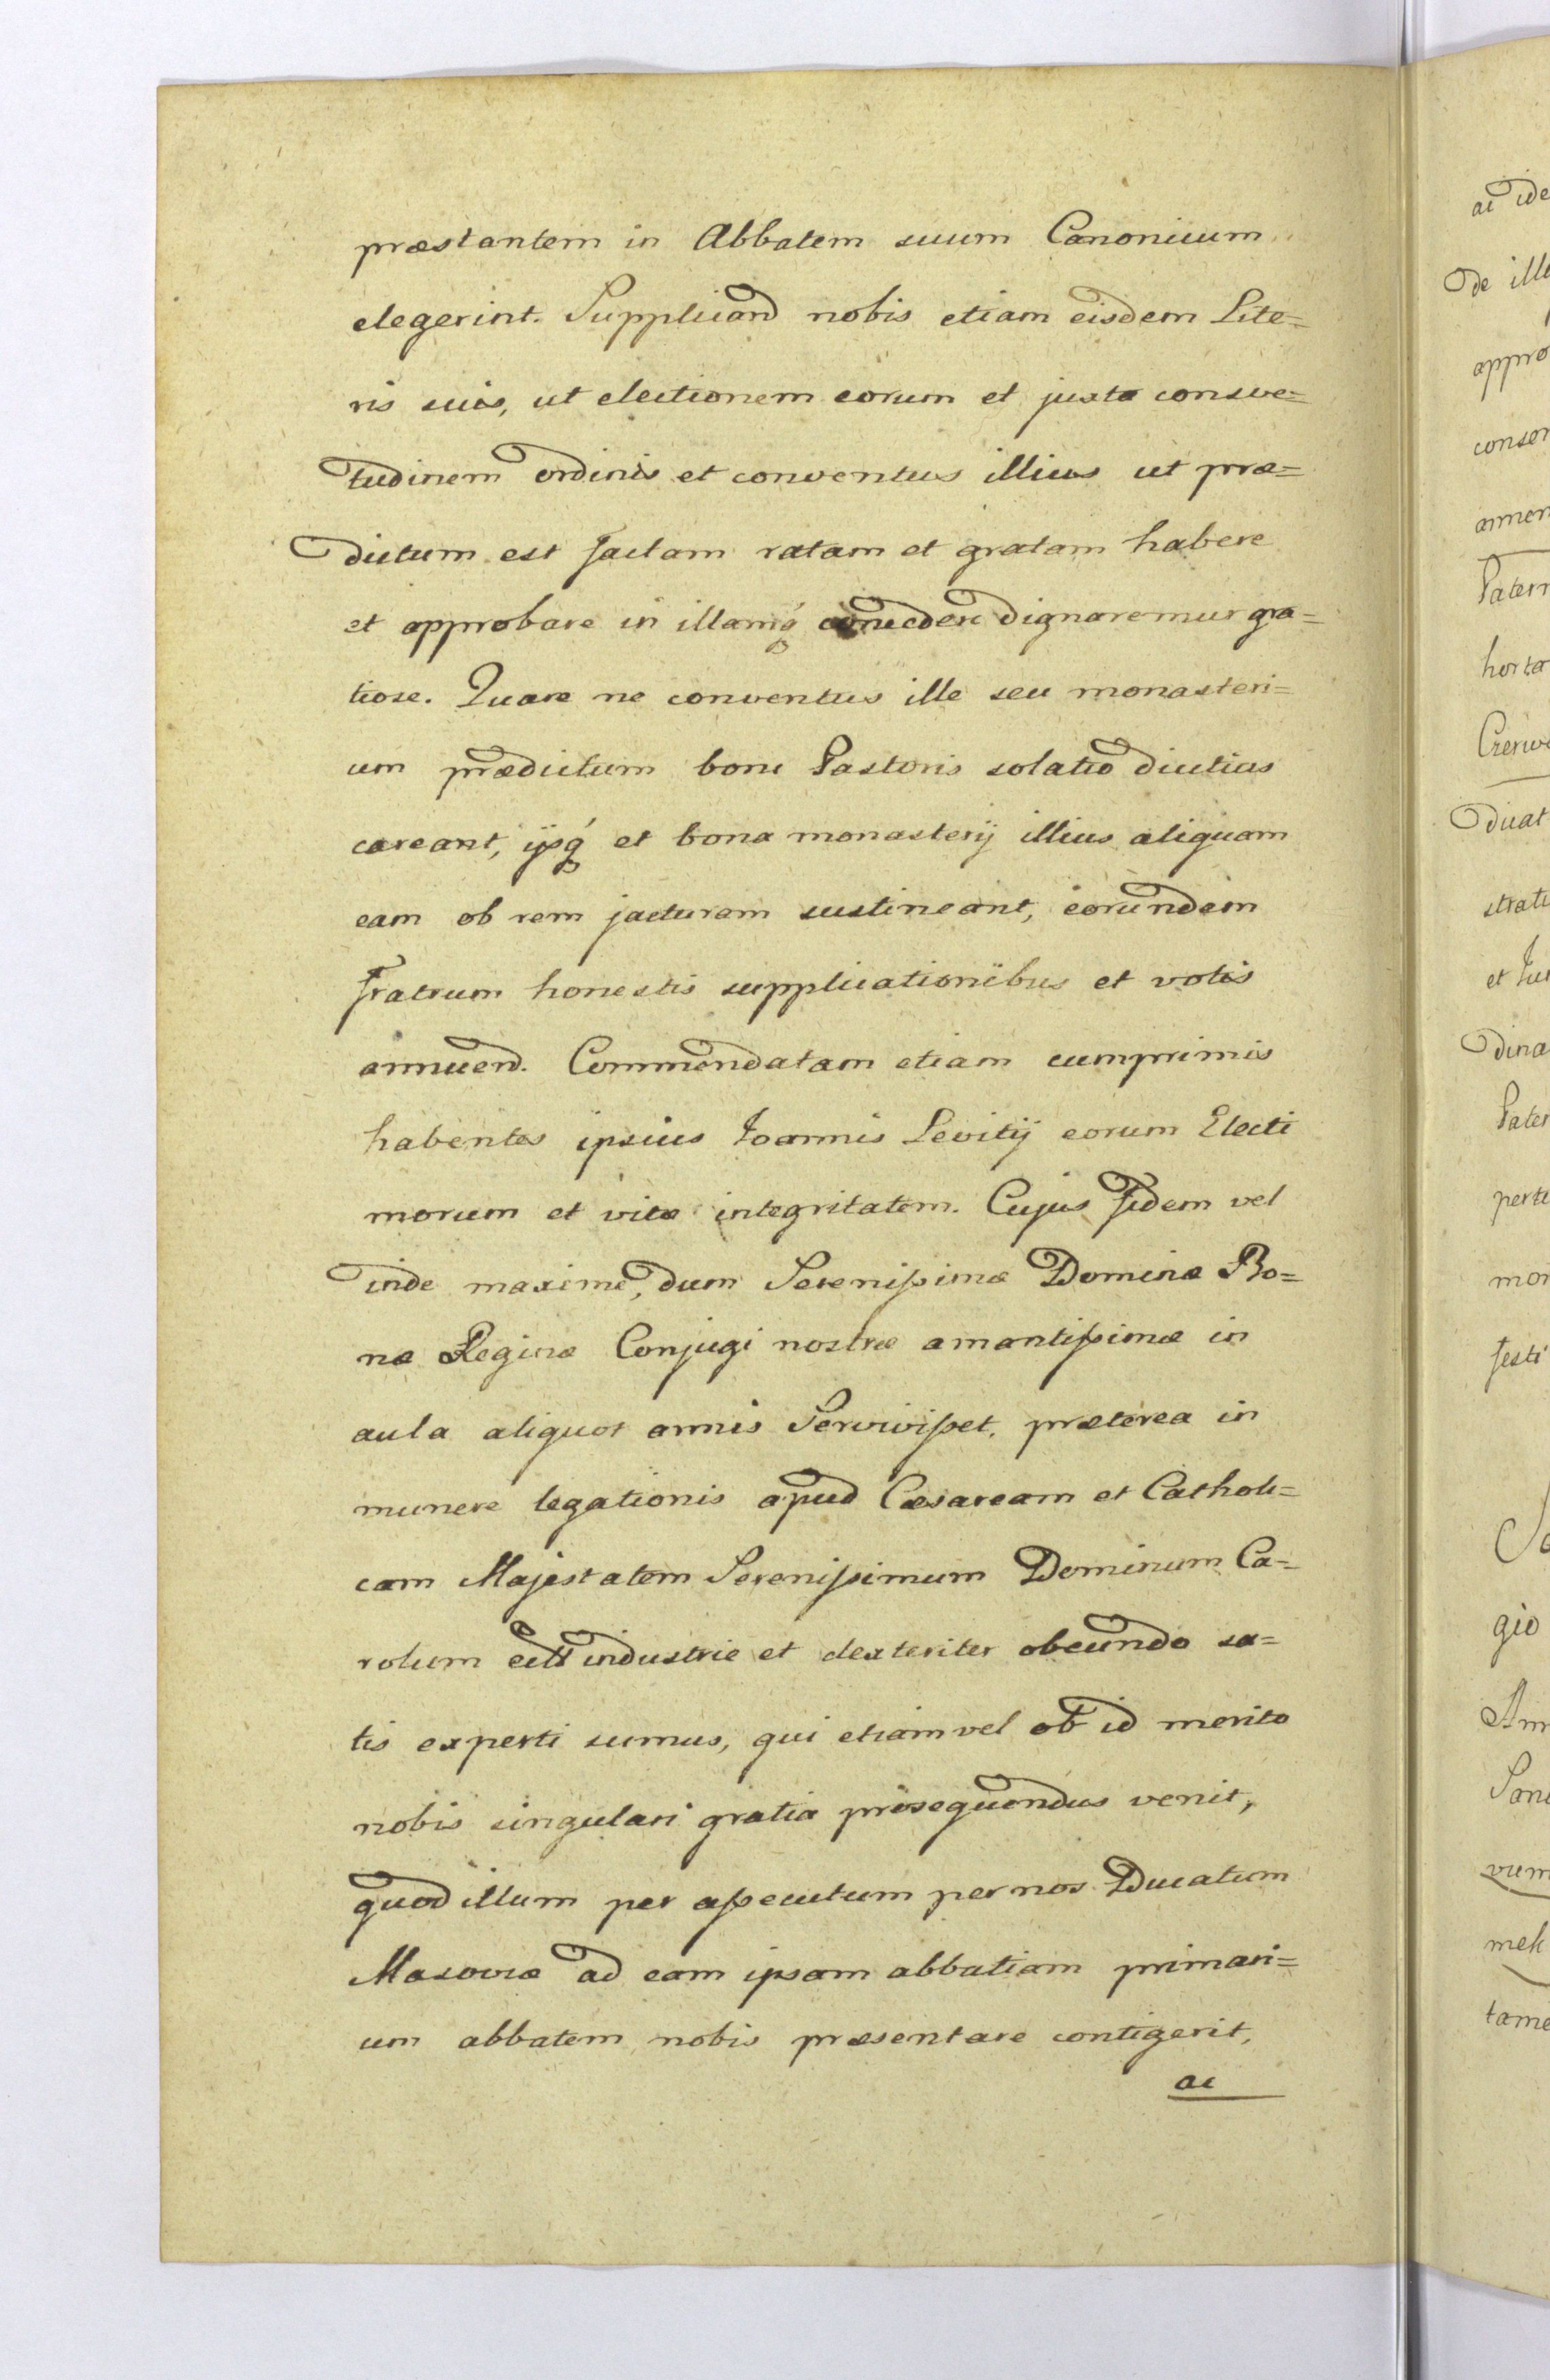 præstantem in Abbatem suum Canonicum
elegerint. Supplicand nobis etiam eisdem Lite=
ris suis, ut electionem eorum et juxta consve=
tudinem ordinis et conventus illius ut præ=
dictum est factam ratam et gratam habere
et approbare in illamq́ concedere dignaremur gra=
tiose. Quare ne conventus ille seu monasteri=
um prædictum boni Pastoris solatio diutius
careant, ijsq́ et bona monasterij illius aliquam
eam ob rem jacturam sustineant, eorundem
Fratrum honestis supplicationibus et votis
annuend. Commendatam etiam cumprimis
habentes ipsius Joannis Levitij eorum Electi
morum et vitæ integritatem. Cujus fidem vel
inde maxime, dum Serenißimæ Dominæ Bo=
næ Reginæ Conjugi nostræ amantißimæ in
aula aliquot annis Servivißet, præterea in
munere legationis apud Cæsaream et Catholi=
cam Majestatem Serenißimum Dominum Ca=
rolum industrie et dexteriter obeundo sa=
tis experti sumus, qui etiam vel ob id merito
nobis singulari gratia prosequendus venit,
quod illum per aßecutum per nos Ducatum
Masoviæ ad eam ipsam abbatiam primari=
um abbatem nobis præsentare contigerit,
ac
ac ide
de ill
appro
consen
amen
Patern
horta
Czerw
ducat
strati
et Ju
dina
Pater
perti
mon
festi
gio
Ann
vum
mek
tame